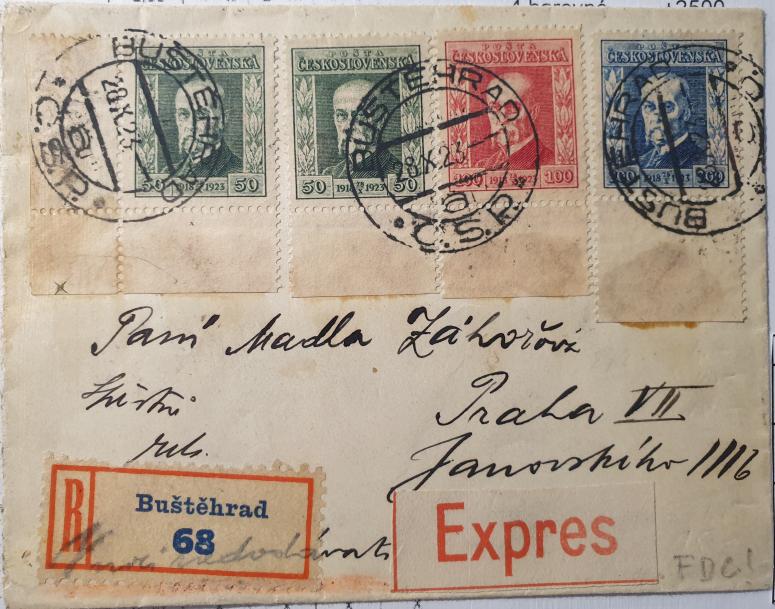 4 barevné
+2500
POŠTA
ČESKOSLOVENSKÁ
50 1918 1923 50
POŠTA
ČESKOSLOVENSKÁ
50 1918 1923 50
POŠTA
ČESKOSLOVENSKÁ
100 1918 1923 100
POŠTA
ČESKOSLOVENSKÁ
1918 1923
BUŠTĚHRAD
28.X.23
Č.S.R.
BUŠTĚHRAD
28.X.23
Č.S.R.
BUŠTĚHRAD
Paní Madla Záhořová
Praha VII
Janovského
R
Buštěhrad
68
Expres
FDC!